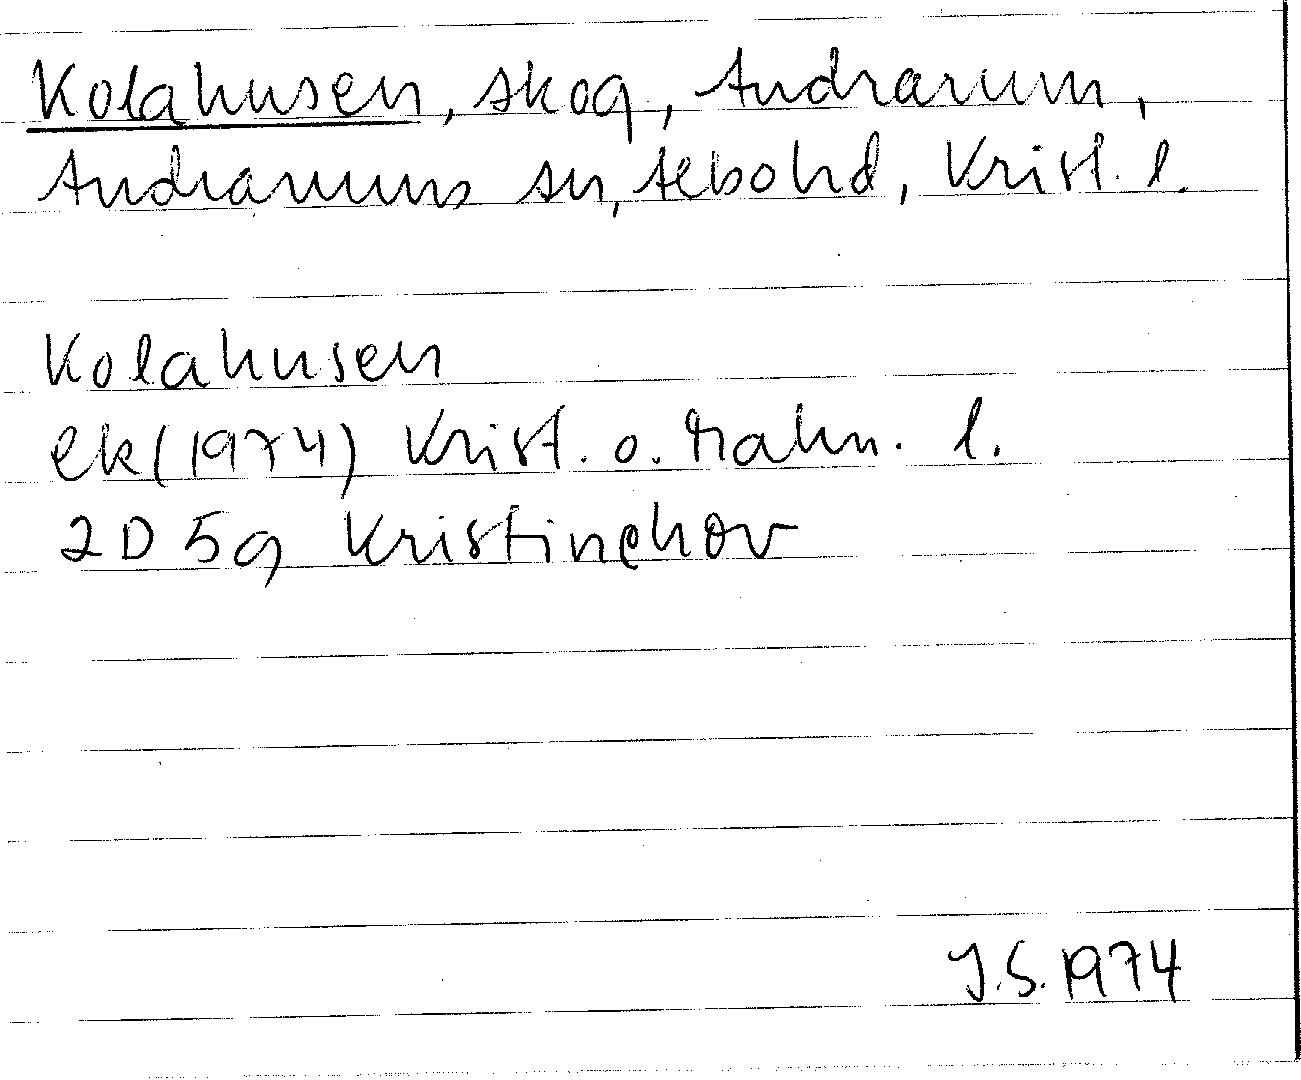 Kolahusen, skog, Andrarum,
Andrarums sn, Albo hd, Krist. l.
Kolahusen
ek (1974) Krist. o. Malm. l.
2D 5g Kristinehov
J.S. 1974